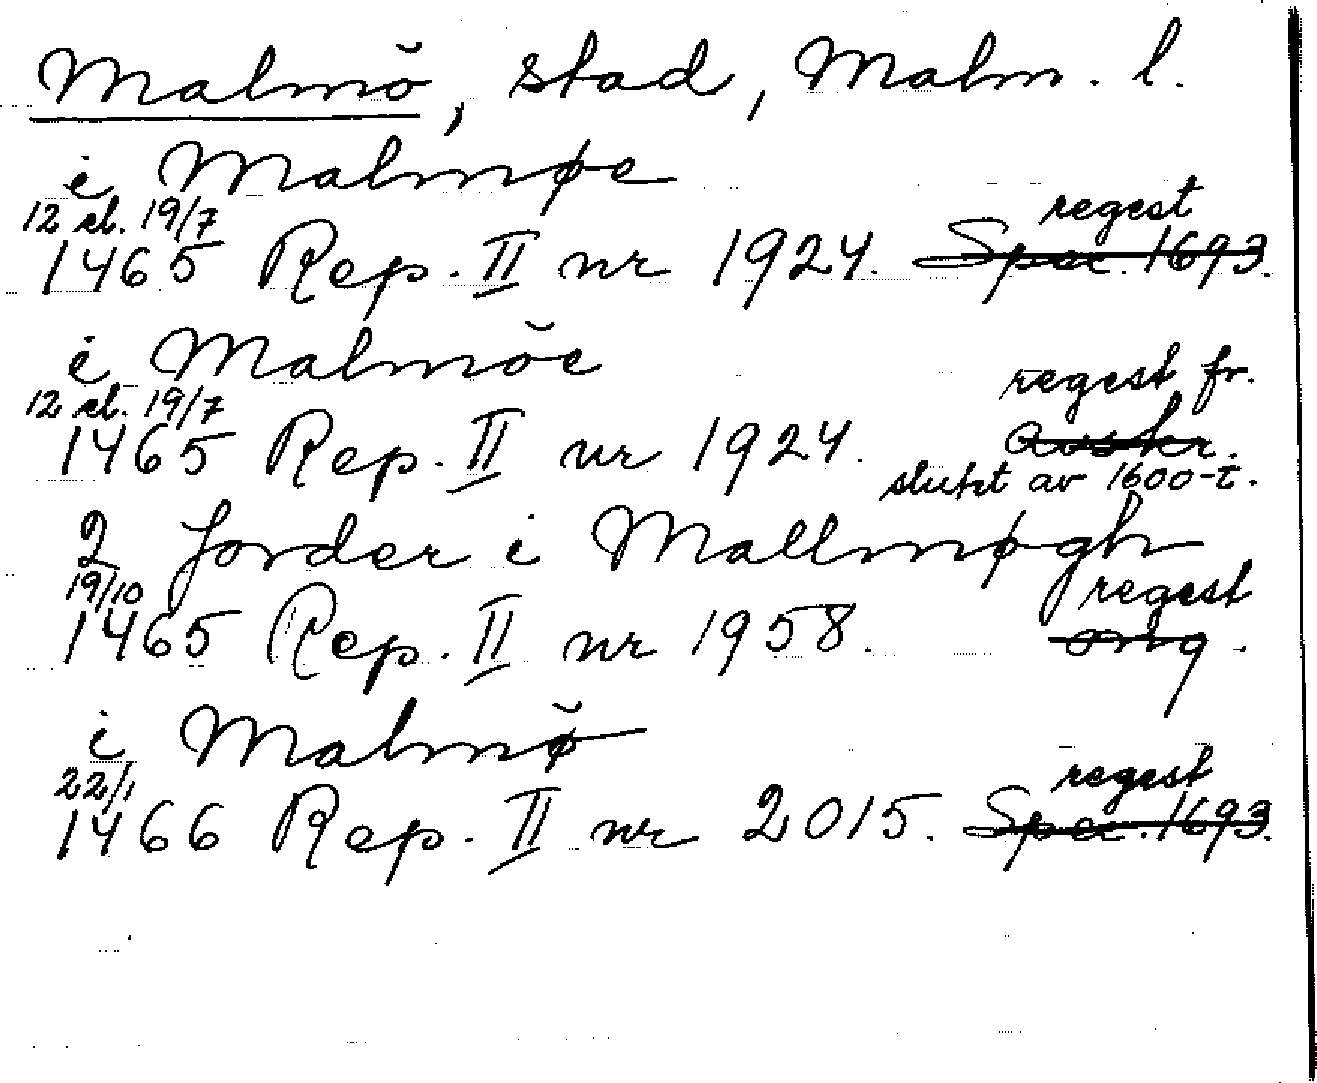 Malmö, stad, Malm. l.
i Malmøe
12 el. 19/7 regest
1465 Rep. II nr 1924. Spec. 1693.
i Malmöe
12 el. 19/7 regest fr.
1465 Rep. II nr 1924. avskr.
slutet av 1600-t.
2 Jorder i Mallmøgh
19/10 regest
1465 Rep. II nr 1958. orig.
i Malmø̆
22/1 regest
1466 Rep. II nr 2015. Spec. 1693.